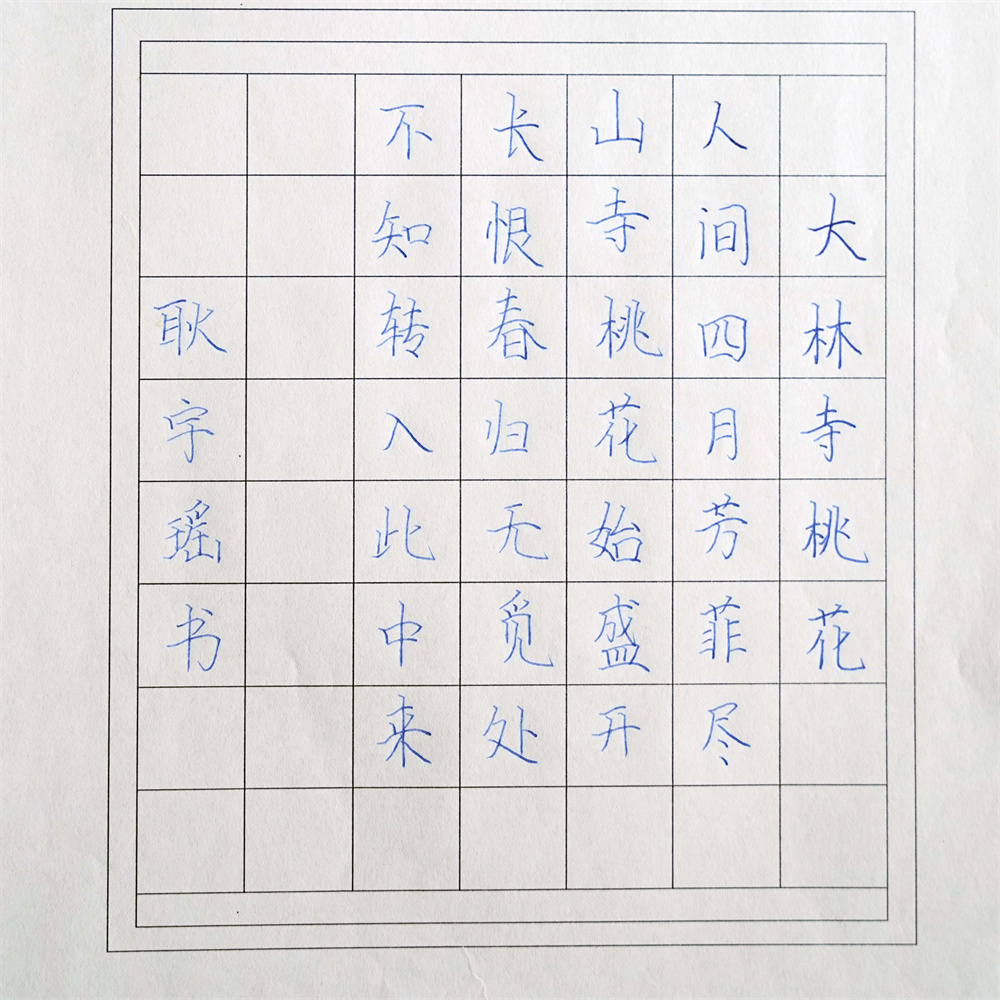 大林寺桃花
人间四月芳菲尽
山寺桃花始盛开
长恨春归无觅处
不知转入此中来
耿宇瑶书